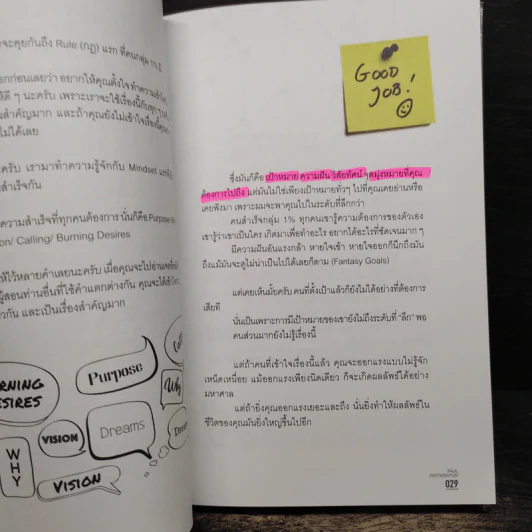 จะคุยกันถึง Rule (กฎ) แรก ที่คนกลุ่ม 1%
อกก่อนเลยว่า อยากให้คุณตั้งใจ ทำความเข้า
ให้ดี ๆ นะครับ เพราะเราจะใช้เรื่องนี้กับทุก
สำคัญมาก และถ้าคุณยังไม่เข้าใจเรื่องนี้
ไม่ได้เลย
ครับ เรามาทำความรู้จักกับ Mindset
สำเร็จกัน
ความสำเร็จที่ทุกคนต้องการ นั่นก็คือ Purpose
on/ Calling/ Burning Desires
ให้ไว้หลายคำเลยนะครับ เผื่อคุณจะไปอ่าน
ผู้สอนท่านอื่นที่ใช้คำแตกต่างกัน คุณจะได้
วกัน และเป็นเรื่องสำคัญมาก
RNING
ESIRES
Purpose
Why
VISION
Dreams
WHY
VISION
GOOD
JOB!
ซึ่งมันก็คือ เป้าหมาย ความฝัน วิสัยทัศน์ จุดมุ่งหมายที่คุณ
ต้องการไปถึง แต่มันไม่ใช่เพียงเป้าหมายทั่วๆ ไปที่คุณเคยอ่านหรือ
เคยฟังมา เพราะผมจะพาคุณไปในระดับที่ลึกกว่า
คนสำเร็จกลุ่ม 1% ทุกคนเขารู้ความต้องการของตัวเอง
เขารู้ว่าเขาเป็นใคร เกิดมาเพื่อทำอะไร อยากได้อะไรที่ชัดเจนมาก ๆ
มีความฝันอันแรงกล้า หายใจเข้า หายใจออกก็นึกถึงมัน
ถึงแม้มันจะดูไม่น่าเป็นไปได้เลยก็ตาม (Fantasy Goals)
แต่เคยเห็นมั้ยครับ คนที่ตั้งเป้าแล้วก็ยังไม่ได้อย่างที่ต้องการ
เสียที
นั่นเป็นเพราะการมีเป้าหมายของเขายังไม่ถึงระดับที่ "ลึก" พอ
คนส่วนมากยังไม่รู้เรื่องนี้
แต่ถ้าคนที่เข้าใจเรื่องนี้แล้ว คุณจะออกแรงแบบไม่รู้จัก
เหน็ดเหนื่อย แม้ออกแรงเพียงนิดเดียว ก็จะเกิดผลลัพธ์ได้อย่าง
มหาศาล
แต่ถ้ายิ่งคุณออกแรงเยอะและถึง นั่นยิ่งทำให้ผลลัพธ์ใน
ชีวิตของคุณมันยิ่งใหญ่ขึ้นไปอีก
PAUL
PATTARAPON
029